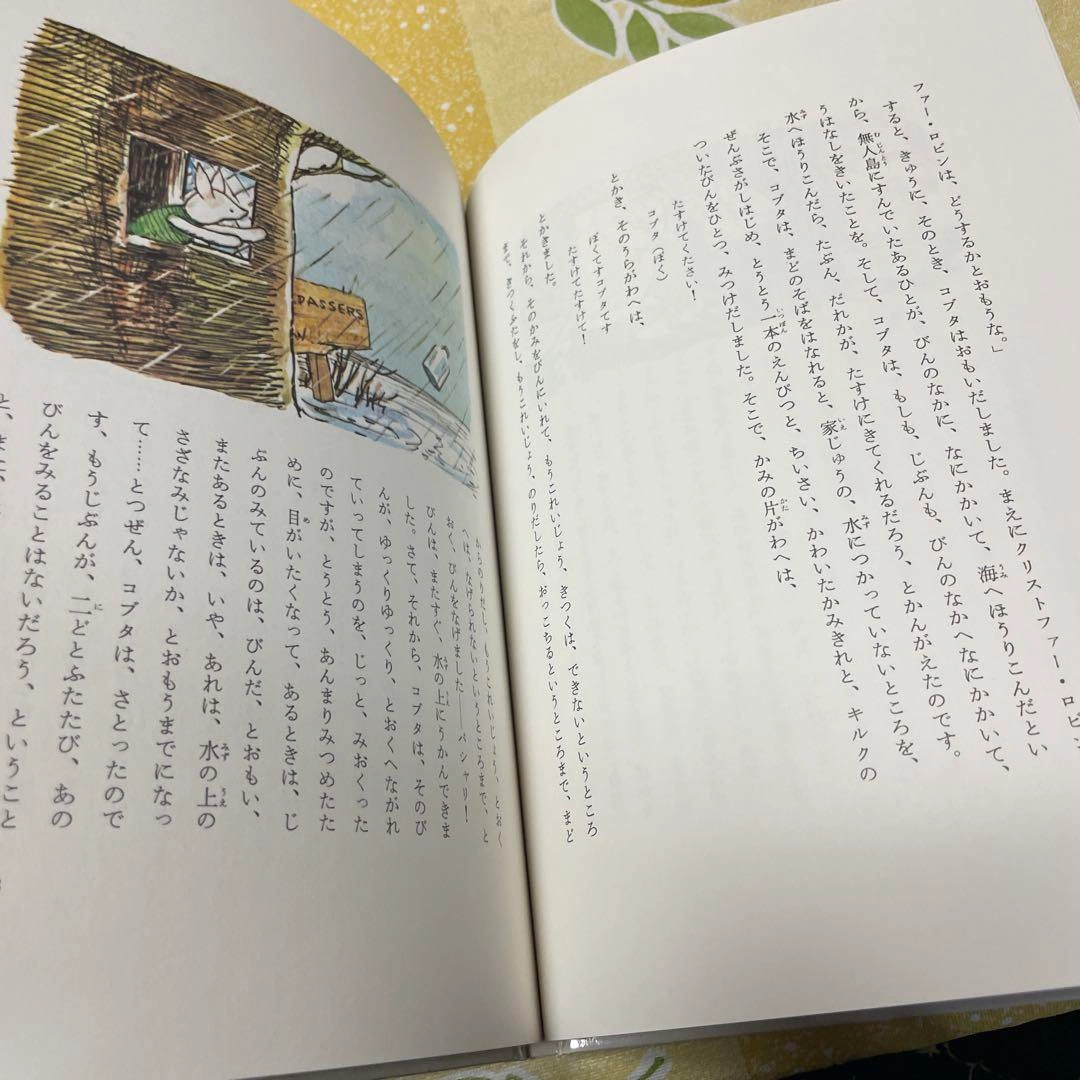 ファー・ロビンは、どうするかとおもうな。」
すると、きゅうに、そのとき、コブタはおもいだしました。まえにクリストファー・ロビン
から、無人島にすんでいたあるひとが、びんのなかに、なにかかいて、海へほうりこんだとい
うはなしをきいたことを。そして、コブタは、もしも、じぶんも、びんのなかへなにかかいて、
水へほうりこんだら、たぶん、だれかが、たすけにきてくれるだろう、とかんがえたのです。
そこで、コブタは、まどのそばをはなれると、家じゅうの、水につかっていないところを、
ぜんぶさがしはじめ、とうとう一本のえんぴつと、ちいさい、かわいたかみきれと、キルクの
ついたびんをひとつ、みつけだしました。そこで、かみの片がわへは、
たすけてください!
コブタ(ぼく)
とかき、そのうらがわへは、
ぼくですコブタです
たすけてたすけて!
とかきました。
それから、そのかみをびんにいれて、もうこれいじょう、きつくは、できないというところ
まで、きつくふたをし、もうこれいじょう、のりだしたら、おっこちるというところまで、まど
からのりだし、もうこれいじょう、とおく
へは、なげられないというところまで、と
おく、びんをなげました——パシャリ!
びんは、またすぐ、水の上にうかんできま
した。さて、それから、コブタは、そのび
んが、ゆっくりゆっくり、とおくへながれ
ていってしまうのを、じっと、みおくった
のですが、とうとう、あんまりみつめたた
めに、目がいたくなって、あるときは、じ
ぶんのみているのは、びんだ、とおもい、
またあるときは、いや、あれは、水の上の
さざなみじゃないか、とおもうまでになっ
て……とつぜん、コブタは、さとったので
す、もうじぶんが、二どとふたたび、あの
びんをみることはないだろう、ということ
と、また、
PASSERS
W